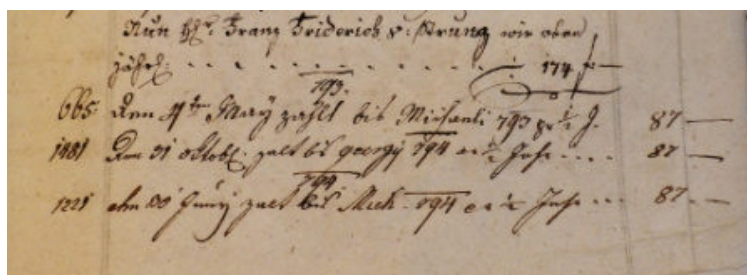 Nun H. Franz Friderich v: Prung wir oben
jährl: . . . . . . . . . . 174 f —
793.
665. Den 4ten May zahlt bis Michaeli 793 pr ½ J. 87 —
1481 Den 31 octobr. zalt bis georgÿ 794 ½ Jahr .... 87 —
794.
1221 Junÿ zalt bis Mich. 794 ½ Jahr ... 87 —